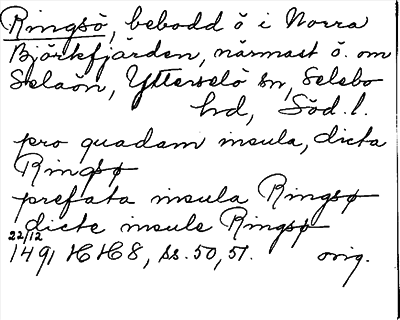 Ringsö, bebodd ö i Norra
Björkfjärden, närmast ö. om
Selaön, Ytterselö sn, Selebo
hd, Söd. l.
pro quadam insula, dicta
Ringsø
prefata insula Ringsø
dicte insule Ringsø
22/12
1491 HH8, ss. 50, 51. orig.